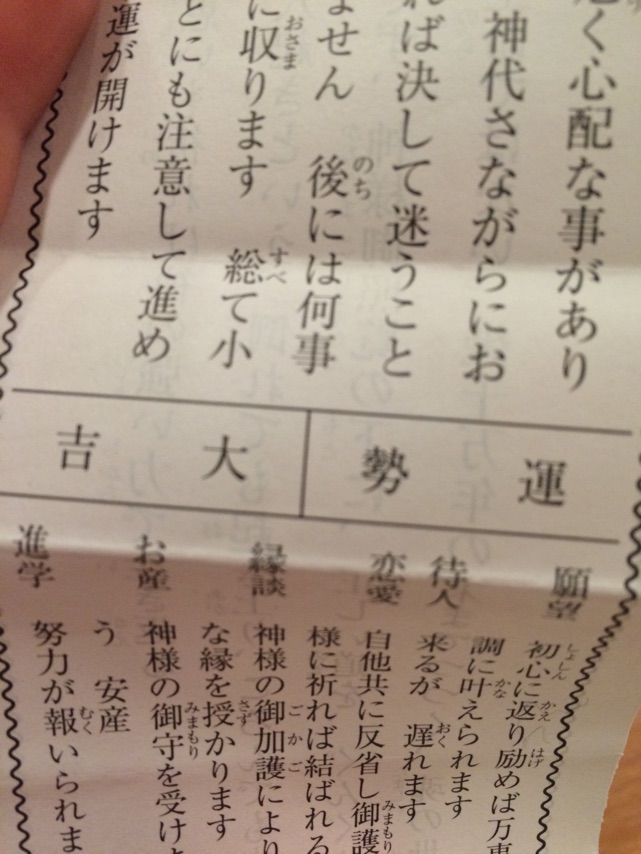 く心配な事があり
神代さながらにお
れば決して迷うこと
ません 後には何事
に収ります 総て小
とにも注意して進め
運が開けます
運勢
大吉
願望 初心に返り励めば万事
調に叶えられます
待人 来るが 遅れます
恋愛 自他共に反省し御護
様に祈れば結ばれる
縁談 神様の御加護により
な縁を授かります
お産 神様の御守を受けと
う 安産
進学 努力が報いられま